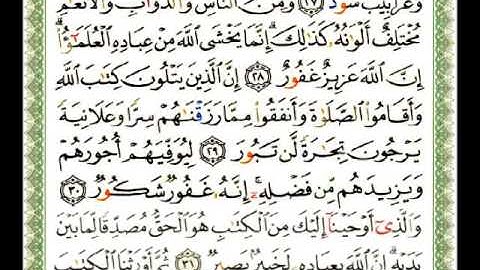 وَغَرَابِيبُ سُودٌ ٢٧ وَمِنَ ٱلنَّاسِ وَٱلدَّوَآبِّ وَٱلْأَنْعَـٰمِ
مُخْتَلِفٌ أَلْوَٰنُهُۥ كَذَٰلِكَ ۗ إِنَّمَا يَخْشَى ٱللَّهَ مِنْ عِبَادِهِ ٱلْعُلَمَـٰٓؤُا۟ ۗ
إِنَّ ٱللَّهَ عَزِيزٌ غَفُورٌ ٢٨ إِنَّ ٱلَّذِينَ يَتْلُونَ كِتَـٰبَ ٱللَّهِ
وَأَقَامُوا۟ ٱلصَّلَوٰةَ وَأَنفَقُوا۟ مِمَّا رَزَقْنَـٰهُمْ سِرًّا وَعَلَانِيَةً
يَرْجُونَ تِجَـٰرَةً لَّن تَبُورَ ٢٩ لِيُوَفِّيَهُمْ أُجُورَهُمْ
وَيَزِيدَهُم مِّن فَضْلِهِۦٓ ۚ إِنَّهُۥ غَفُورٌ شَكُورٌ ٣٠
وَٱلَّذِىٓ أَوْحَيْنَآ إِلَيْكَ مِنَ ٱلْكِتَـٰبِ هُوَ ٱلْحَقُّ مُصَدِّقًا لِّمَا بَيْنَ
يَدَيْهِ ۗ إِنَّ ٱللَّهَ بِعِبَادِهِۦ لَخَبِيرٌۢ بَصِيرٌ ٣١ ثُمَّ أَوْرَثْنَا ٱلْكِتَـٰبَ